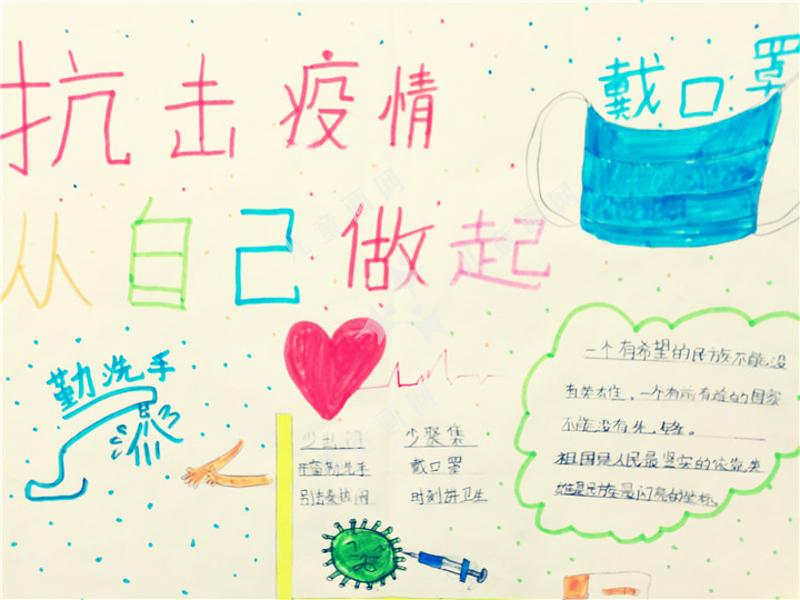 抗击疫情
戴口罩
从自己做起
勤洗手
一个有希望的民族不能没
有英雄，一个有前途的国家
不能没有先锋。
祖国是人民最坚实的依靠，英
雄是民族最闪亮的坐标。
少出门
少聚集
开窗勤洗手
戴口罩
别去凑热闹
时刻讲卫生
儿童画网